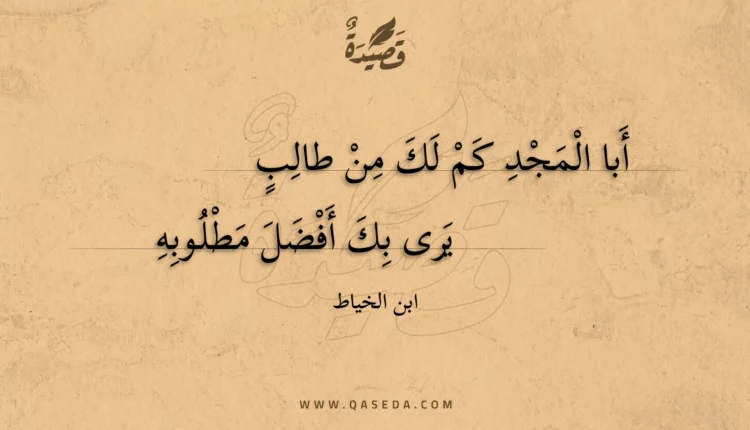 قَصِيْدَةٌ
أَبا الْمَجْدِ كَمْ لَكَ مِنْ طالِبٍ
يَرى بِكَ أَفْضَلَ مَطْلُوبِهِ
ابن الخياط
WWW.QASEDA.COM